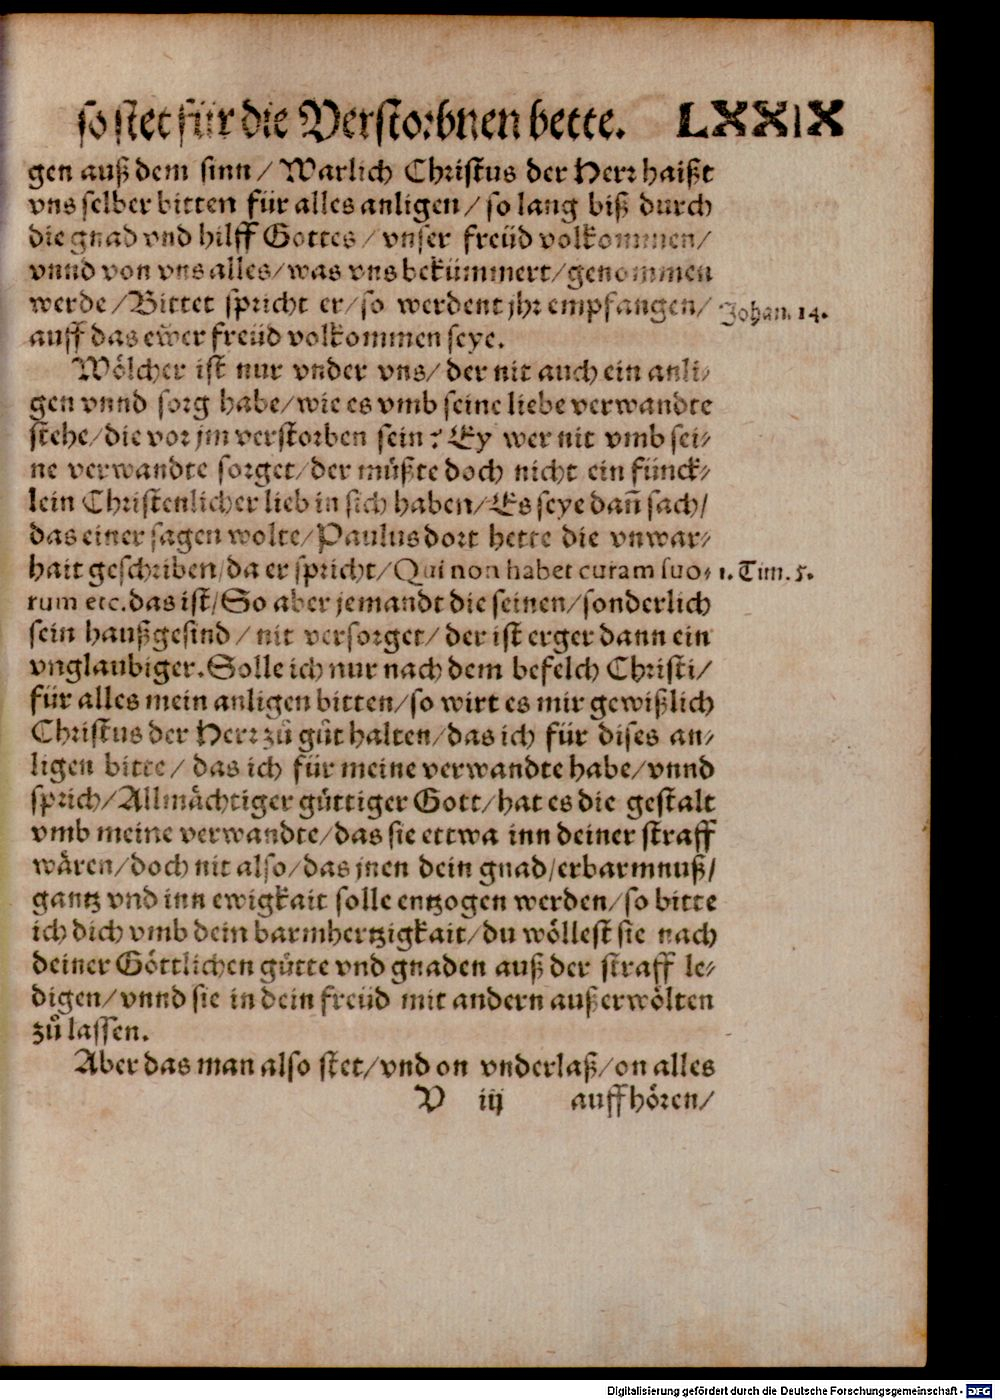 so stet für die Verstorbnen bette. LXXIX
gen auß dem sinn / Warlich Christus der Herr haißt
vns selber bitten für alles anligen / so lang biß durch
die gnad vnd hilff Gottes / vnser freüd volkommen /
vnnd von vns alles / was vns bekümmert / genommen
werde / Bittet spricht er / so werdent jhr empfangen /
Johan. 14.
auff das ewer freüd volkommen seye.
Wölcher ist nur vnder vns / der nit auch ein anli⸗
gen vnnd sorg habe / wie es vmb seine liebe verwandte
stehe / die vor jm verstorben sein? Ey wer nit vmb sei⸗
ne verwandte sorget / der müßte doch nicht ein fünck⸗
lein Christenlicher lieb in sich haben / Es seye dañ sach /
das einer sagen wolte / Paulus dort hette die vnwar⸗
hait geschriben / da er spricht / Qui non habet curam suo⸗
1. Tim. 5.
rum etc. das ist / So aber jemandt die seinen / sonderlich
sein haußgesind / nit versorget / der ist erger dann ein
vnglaubiger. Solle ich nur nach dem befelch Christi /
für alles mein anligen bitten / so wirt es mir gewißlich
Christus der Herr zů gůt halten / das ich für dises an⸗
ligen bitte / das ich für meine verwandte habe / vnnd
sprich / Allmächtiger güttiger Gott / hat es die gestalt
vmb meine verwandte / das sie ettwa inn deiner straff
wären / doch nit also / das jnen dein gnad / erbarmnuß /
gantz vnd inn ewigkait solle entzogen werden / so bitte
ich dich vmb dein barmhertzigkait / du wöllest sie nach
deiner Göttlichen gütte vnd gnaden auß der straff le⸗
digen / vnnd sie in dein freüd mit andern außerwölten
zů lassen.
Aber das man also stet / vnd on vnderlaß / on alles
V iij auffhören /
Digitalisierung gefördert durch die Deutsche Forschungsgemeinschaft - DFG